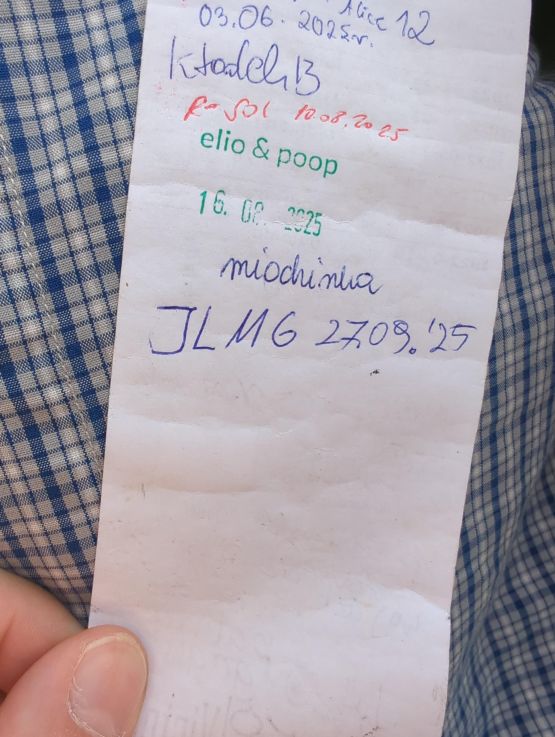 Alice 12
03.06. 2025r.
R-SOL 10.08.2025
elio & poop
16. 08. 2025
miodzinka
JLMG 27.09.'25